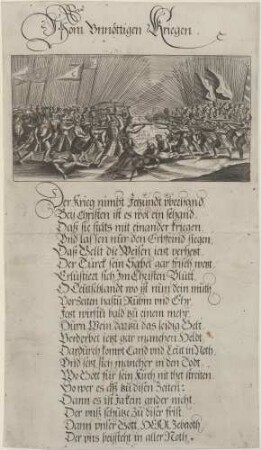 Vom Vnnöttigen Kriegen.
Der Krieg nimbt Jetzundt vberhand,
Bey Christen ist es wol ein schand,
Daß sie stäts mit einander kriegen
Vnd lassen nur den Erbfeind siegen
Daß Gellt die Weisen
Der Türck sein Sebel gar frisch wezt
Erlustiert sich Im Christen Blutt,
O Teütschlandt wo ist nun dein muth
Vorzeiten hastu Rühm vnd Ehr
Jazt würstu bald zu einem mehr
Dürn Wein darzu das leidig Gelt
Verderbet iezt gar manchen Heldt
Dardurch kompt Land vnd Leüt in Noth
Vnd sezt sich mancher in den Todt
Wo Gott für sein Kirch nit thet streiten
So wer es zů disen Zeiten:
Dann es ist Ja kein ander nicht
Der vnß schütze Zu diser frist
Dann vnser Gott HERR Zebaoth
Der vns beysteht in aller Noth.